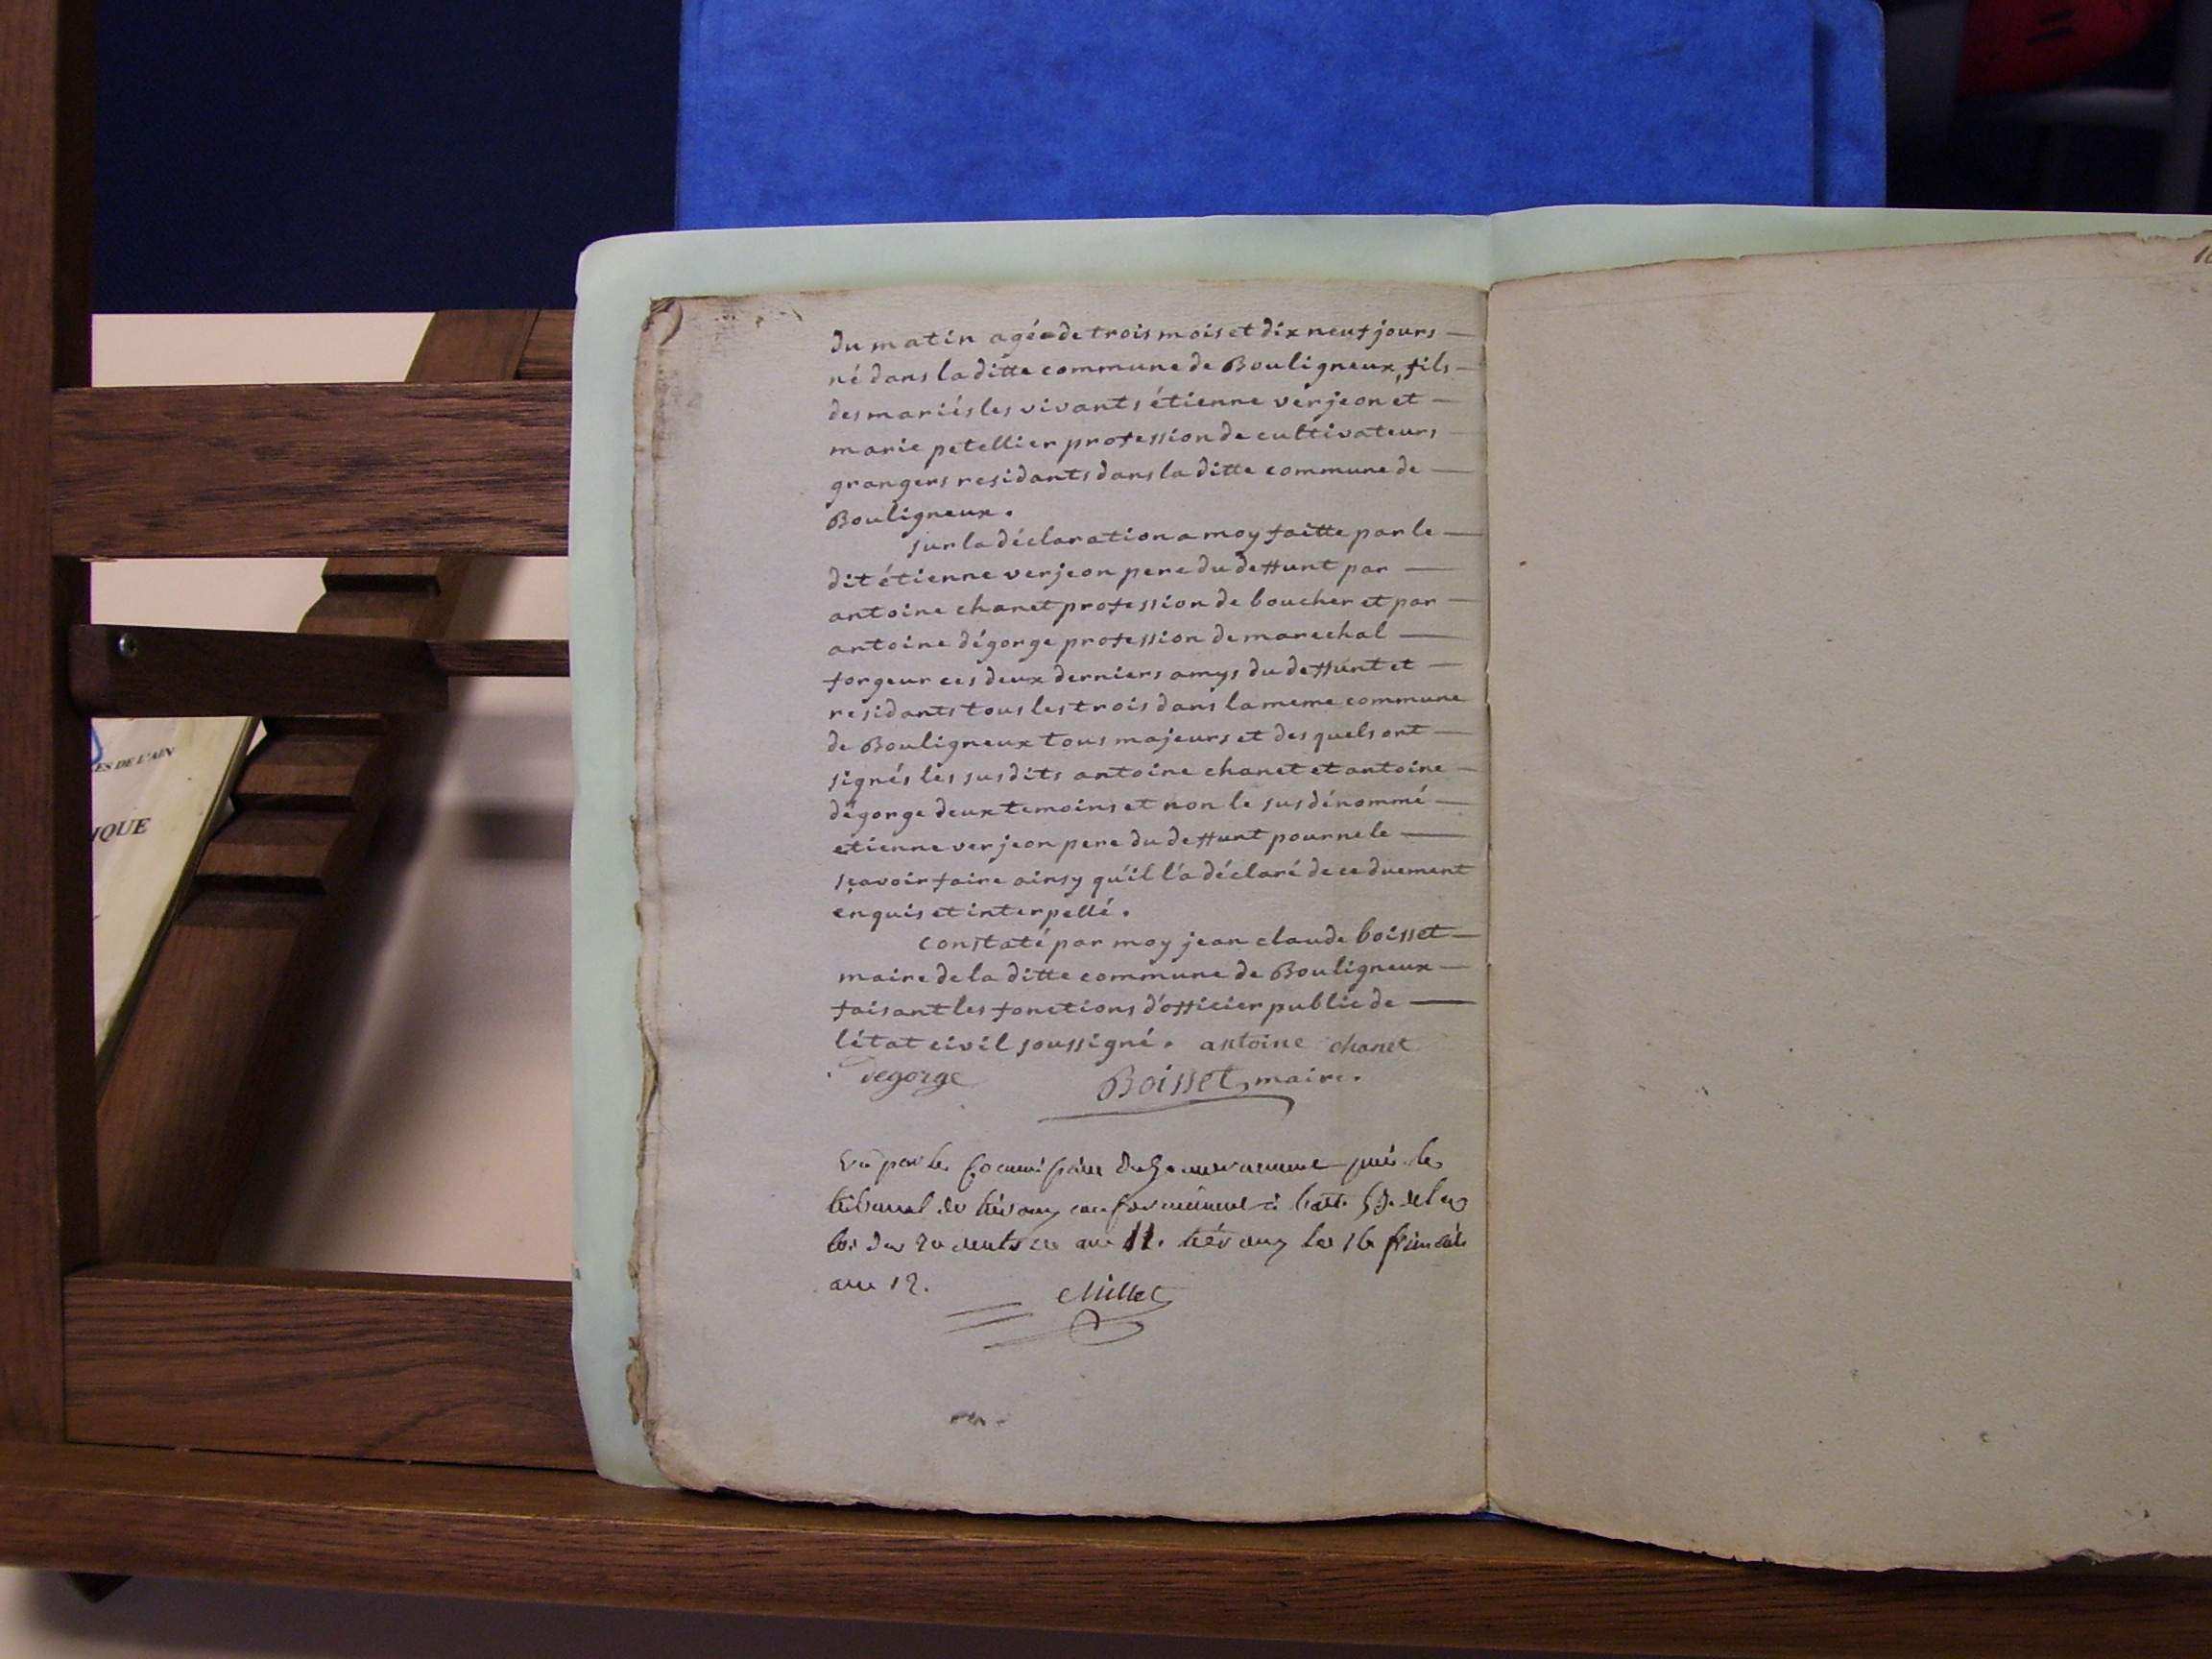 ES DE L'AIN
IQUE
10
du matin agée de trois mois et dix neuf jours
né dans la ditte commune de Bouligneux, fils
des mariés les vivants étienne verjeon et
marie petellier profession de cultivateurs
grangers residants dans la ditte commune de
Bouligneux.
sur la déclaration a moy faitte par le
dit étienne verjeon pere du deffunt par
antoine chanet profession de boucher et par
antoine dégorge profession de marechal
forgeur ces deux derniers amys du deffunt et
residants tous les trois dans la meme commune
de Bouligneux tous majeurs et des quels ont
signés les susdits antoine chanet et antoine
dégorge deux temoins et non le susdénommé
etienne verjeon pere du deffunt pour ne le
sçavoir faire ainsy qu'il l'a déclaré de ce duement
enquis et interpellé.
constaté par moy jean claude boisset
maire de la ditte commune de Bouligneux
faisant les fonctions d'officier public de
létat civil soussigné. antoine chanet
degorge Boisset, maire.
Vu par le Commissaire du Gouvernement près le
tribunal de trévoux conformément à l'art. 53. de la
loi du 20 ventose an 11. trévoux le 16 frimaire
an 12.
Millet